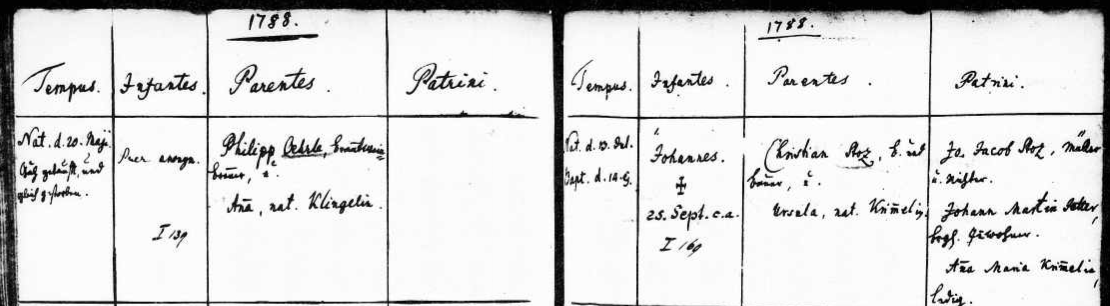 1788.
Tempus. Infantes. Parentes. Patrini.
Nat. d. 20. Maji.
getauft, und
gleich gestorben.
Puer anonym.
I 139
Philipp Oehrle,
bauer, u.
Aña, nat. Klingelin.
1788.
Tempus. Infantes. Parentes. Patrini.
Nat. d. 13. Jul.
Bapt. d. 14. ej.
Johannes.
25. Sept. c.a.
I 169
Christian Stoz, b. und
bauer, u.
Ursula, nat. Kum̃elin.
Jo. Jacob Stoz, Müller
u. Richter.
Johann Martin
Aña Maria Kum̃elin,
ledig.